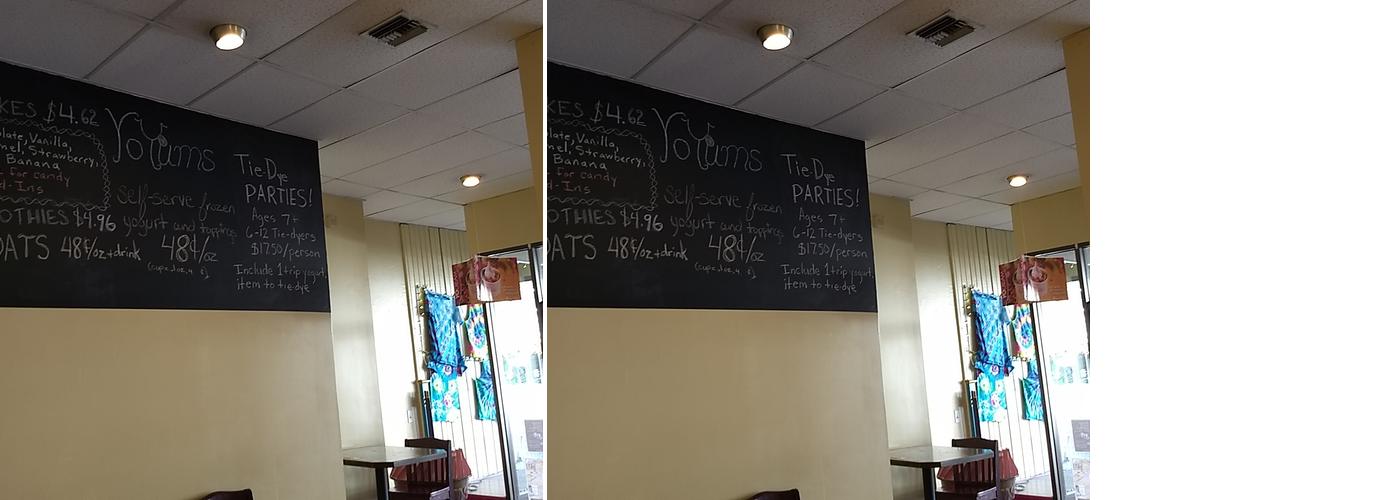 KES $4.62
late, Vanilla,
mel, Strawberry,
Banana
for candy
d-Ins
OTHIES $4.96
OATS 48¢/oz+drink
Yoyums
self-serve frozen
yogurt and toppings
48¢/oz
Tie-Dye
PARTIES!
Ages 7+
6-12 Tie-dyers
$17.50/person
Include 1 trip yogurt,
item to tie-dye
KES $4.62
late, Vanilla,
mel, Strawberry,
Banana
for candy
d-Ins
OTHIES $4.96
OATS 48¢/oz+drink
Yoyums
self-serve frozen
yogurt and toppings
48¢/oz
Tie-Dye
PARTIES!
Ages 7+
6-12 Tie-dyers
$17.50/person
Include 1 trip yogurt,
item to tie-dye